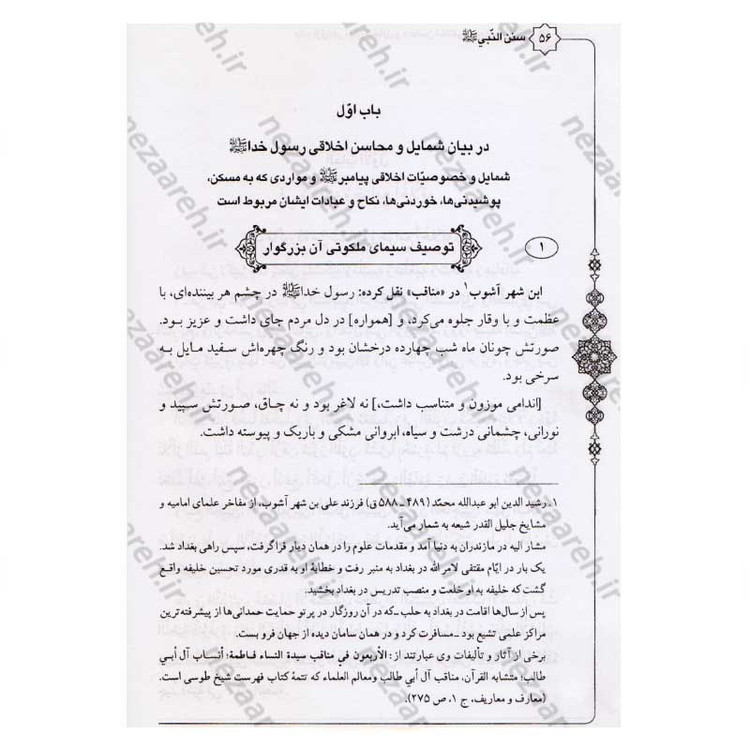 ۵۶
سنن النّبی ﷺ
باب اوّل
در بیان شمایل و محاسن اخلاقی رسول خدا ﷺ
شمایل و خصوصیّات اخلاقی پیامبر ﷺ و مواردی که به مسکن،
پوشیدنی‌ها، خوردنی‌ها، نکاح و عبادات ایشان مربوط است
۱
توصیف سیمای ملکوتی آن بزرگوار
ابن شهر آشوب۱ در «مناقب» نقل کرده: رسول خدا ﷺ در چشم هر بیننده‌ای، با
عظمت و با وقار جلوه می‌کرد، و [همواره] در دل مردم جای داشت و عزیز بود.
صورتش چونان ماه شب چهارده درخشان بود و رنگ چهره‌اش سفید مایل به
سرخی بود.
[اندامی موزون و متناسب داشت،] نه لاغر بود و نه چاق، صورتش سپید و
نورانی، چشمانی درشت و سیاه، ابروانی مشکی و باریک و پیوسته داشت.
۱ ـ رشید الدین ابو عبدالله محمّد (۴۸۹ ـ ۵۸۸ ق) فرزند علی بن شهر آشوب، از مفاخر علمای امامیه و
مشایخ جلیل القدر شیعه به شمار می‌آید.
مشار الیه در مازندران به دنیا آمد و مقدمات علوم را در همان دیار فراگرفت، سپس راهی بغداد شد.
یک بار در ایّام مقتفی لامر الله در بغداد به منبر رفت و خطابهٔ او به قدری مورد تحسین خلیفه واقع
گشت که خلیفه به او خلعت و منصب تدریس در بغداد بخشید.
پس از سال‌ها اقامت در بغداد به حلب ـ که در آن روزگار در پرتو حمایت حمدانی‌ها از پیشرفته‌ترین
مراکز علمی تشیع بود ـ مسافرت کرد و در همان سامان دیده از جهان فرو بست.
برخی از آثار و تألیفات وی عبارتند از: الأربعون في مناقب سيدة النساء فاطمة؛ أنساب آل أبي
طالب؛ متشابه القرآن، مناقب آل أبي طالب ومعالم العلماء که تتمهٔ کتاب فهرست شیخ طوسی است.
(معارف و معاریف، ج ۱، ص ۲۷۵).
nezaareh.ir
nezaareh.ir
nezaareh.ir
nezaareh.ir
nezaareh.ir
nezaareh.ir
nezaareh.ir
nezaareh.ir
nezaareh.ir